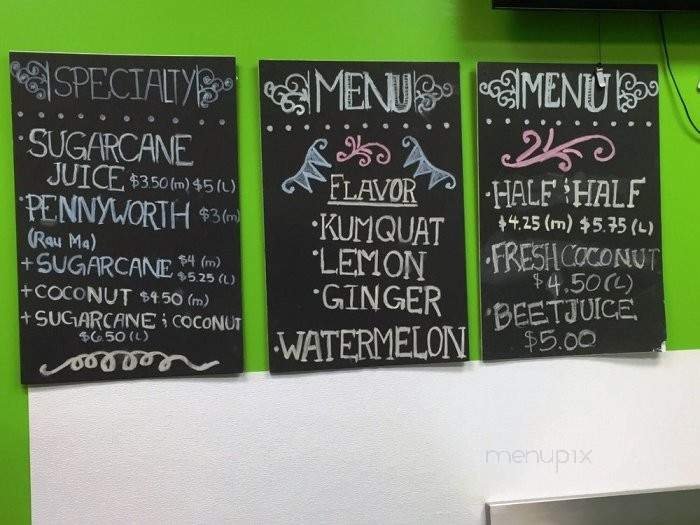 SPECIALTY
·SUGARCANE
JUICE $3.50 (m) $5 (L)
·PENNYWORTH $3 (m)
(Rau Ma)
+ SUGARCANE $4 (m)
$5.25 (L)
+ COCONUT $4.50 (m)
+ SUGARCANE ; COCONUT
$6.50 (L)
MENU
FLAVOR
·KUMQUAT
·LEMON
·GINGER
·WATERMELON
MENU
·HALF ; HALF
$4.25 (m) $5.75 (L)
·FRESH COCONUT
$4.50 (L)
·BEETJUICE
$5.00
menupix